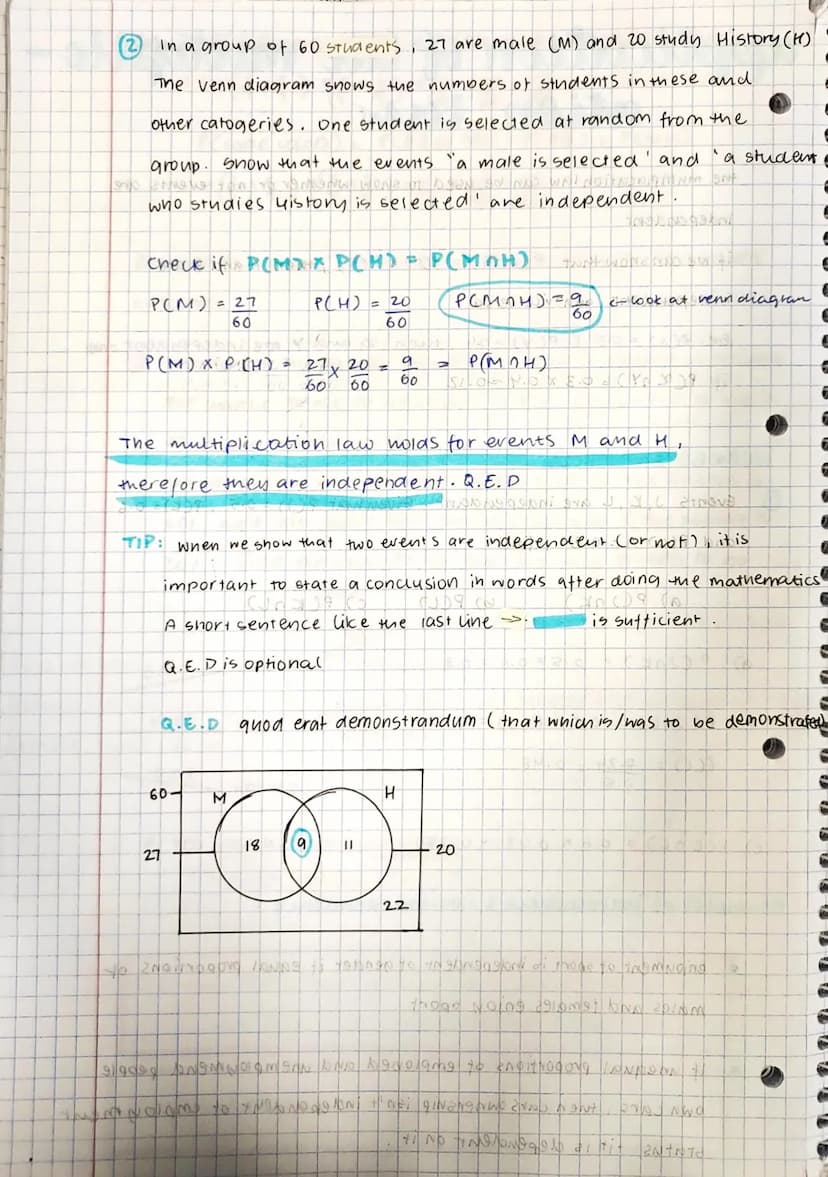 2 In a group of 60 students, 27 are male (M) and 20 study History (H)
The Venn diagram shows the numbers of students in these and
other catogeries. One student is selected at random from the
group. Show that the events "a male is selected' and 'a student
who studies History is selected' are independent.
Check if P(M) x P(H) = P(M∩H)
P(M) = 27/60 P(H) = 20/60 P(M∩H) = 9/60 ← look at venn diagram
P(M) x P(H) = 27/60 x 20/60 = 9/60 = P(M∩H)
The multiplication law holds for events M and H,
therefore they are independent. Q.E.D
TIP: when we show that two events are independent (or not), it is
important to state a conclusion in words after doing the mathematics
A short sentence like the last line → is sufficient.
Q.E.D is optional
Q.E.D quod erat demonstrandum (that which is/was to be demonstrated)
60 M H
27 18 9 11 20
22